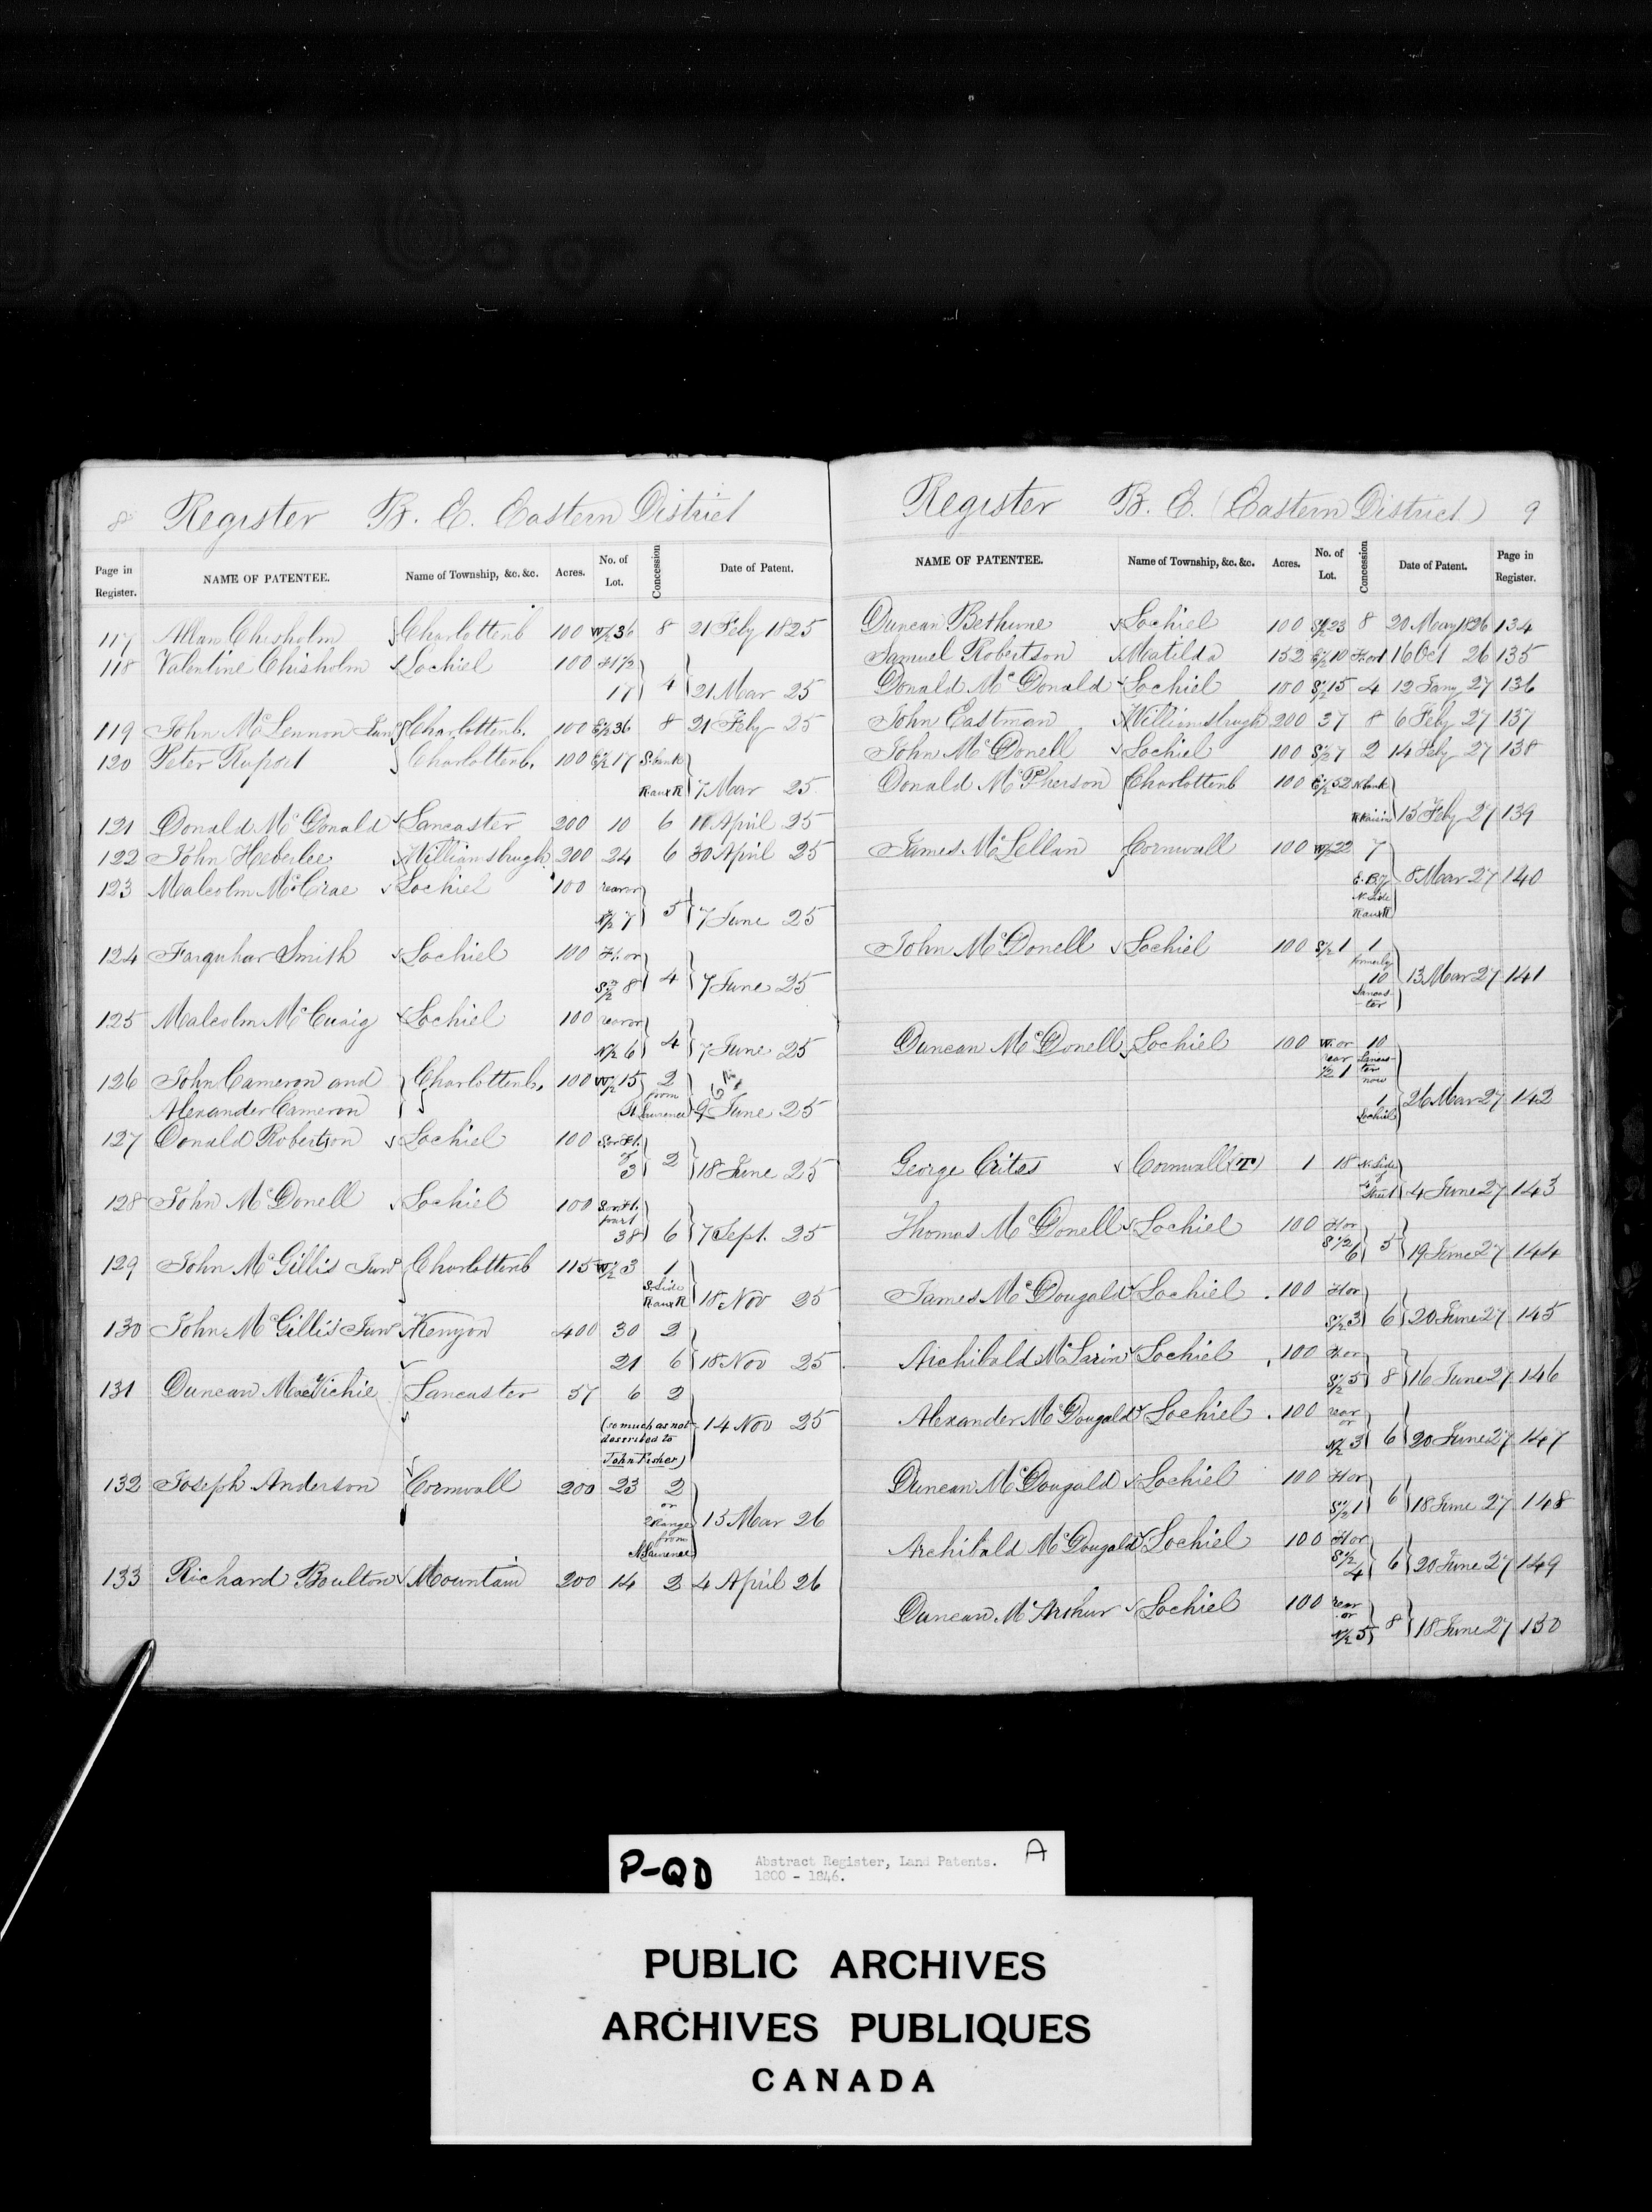 8 Register B. E. Eastern District
Page in Register. NAME OF PATENTEE. Name of Township, &c. &c. Acres. No. of Lot. Concession Date of Patent.
117 Allan Chisholm Charlottenb 100 W½ 36 8 21 Feby 1825
118 Valentine Chisholm Lochiel 100 Ft ½
17 4 21 Mar 25
119 John McLennon Junr Charlottenb. 100 E½ 36 8 21 Feby 25
120 Peter Rupert Charlottenb. 100 E½ 17 S. bank
R aux R 7 Mar 25
121 Donald McDonald Lancaster 200 10 6 11 April 25
122 John Heberlee Williamsburgh 200 24 6 30 April 25
123 Malcolm McCrae Lochiel 100 rear or
N½ 7 5 7 June 25
124 Farquhar Smith Lochiel 100 Ft. or
S½ 8 4 7 June 25
125 Malcolm McCuaig Lochiel 100 rear or
N½ 6 4 7 June 25
126 John Cameron and Charlottenb. 100 W½ 15 2
from
Alexander Cameron St Lawrence 9 June 25
127 Donald Robertson Lochiel 100 S or Ft.
½
3 2 18 June 25
128 John McDonell Lochiel 100 S or Ft.
part
38 6 7 Sept. 25
129 John McGillis Junr Charlottenb 115 W½ 3 1
S. Side
R aux R 18 Nov 25
130 John McGillis Junr Kenyon 400 30 2
21 6 18 Nov 25
131 Duncan MacVichie Lancaster 57 6 2
(so much as not
described to
John Fisher) 14 Nov 25
132 Joseph Anderson Cornwall 200 23 2
or
2 Range
from
St Lawrence 15 Mar 26
133 Richard Boulton Mountain 200 14 2 4 April 26
Register B. E. (Eastern District) 9
NAME OF PATENTEE. Name of Township, &c. &c. Acres. No. of Lot. Concession Date of Patent. Page in Register.
Duncan Bethune Lochiel 100 S½ 23 8 20 May 1826 134
Samuel Robertson Matilda 152 E½ 10 16 Oct 26 135
Donald McDonald Lochiel 100 S½ 15 4 12 Jany 27 136
John Eastman Williamsburgh 200 37 8 6 Feby 27 137
John McDonell Lochiel 100 S½ 7 2 14 Feby 27 138
Donald McPherson Charlottenb 100 E½ 52 N bank
R Raisin 15 Feby 27 139
James McLellan Cornwall 100 W½ 22 7
E. By
N. Side
R aux R 8 Mar 27 140
John McDonell Lochiel 100 S½ 1 1
formerly
10
Lancas-
ter 13 Mar 27 141
Duncan McDonell Lochiel 100 W. or 10
rear Lancas-
ter
½ 1 now
1
Lochiel 26 Mar 27 142
George Crites Cornwall (T) 1 18 N. Side
Street 4 June 27 143
Thomas McDonell Lochiel 100 Ft or
S½ 6 5 19 June 27 144
James McDougald Lochiel 100 Ft or
S½ 3 6 20 June 27 145
Archibald McLarin Lochiel 100 Ft or
S½ 5 8 16 June 27 146
Alexander McDougald Lochiel 100 rear
or
N½ 3 6 20 June 27 147
Duncan McDougald Lochiel 100 Ft or
S½ 1 6 18 June 27 148
Archibald McDougald Lochiel 100 Ft or
S½
4 6 20 June 27 149
Duncan McArthur Lochiel 100 rear
or
N½ 5 8 18 June 27 150
P-QD Abstract Register, Land Patents. A
1800 - 1846.
PUBLIC ARCHIVES
ARCHIVES PUBLIQUES
CANADA